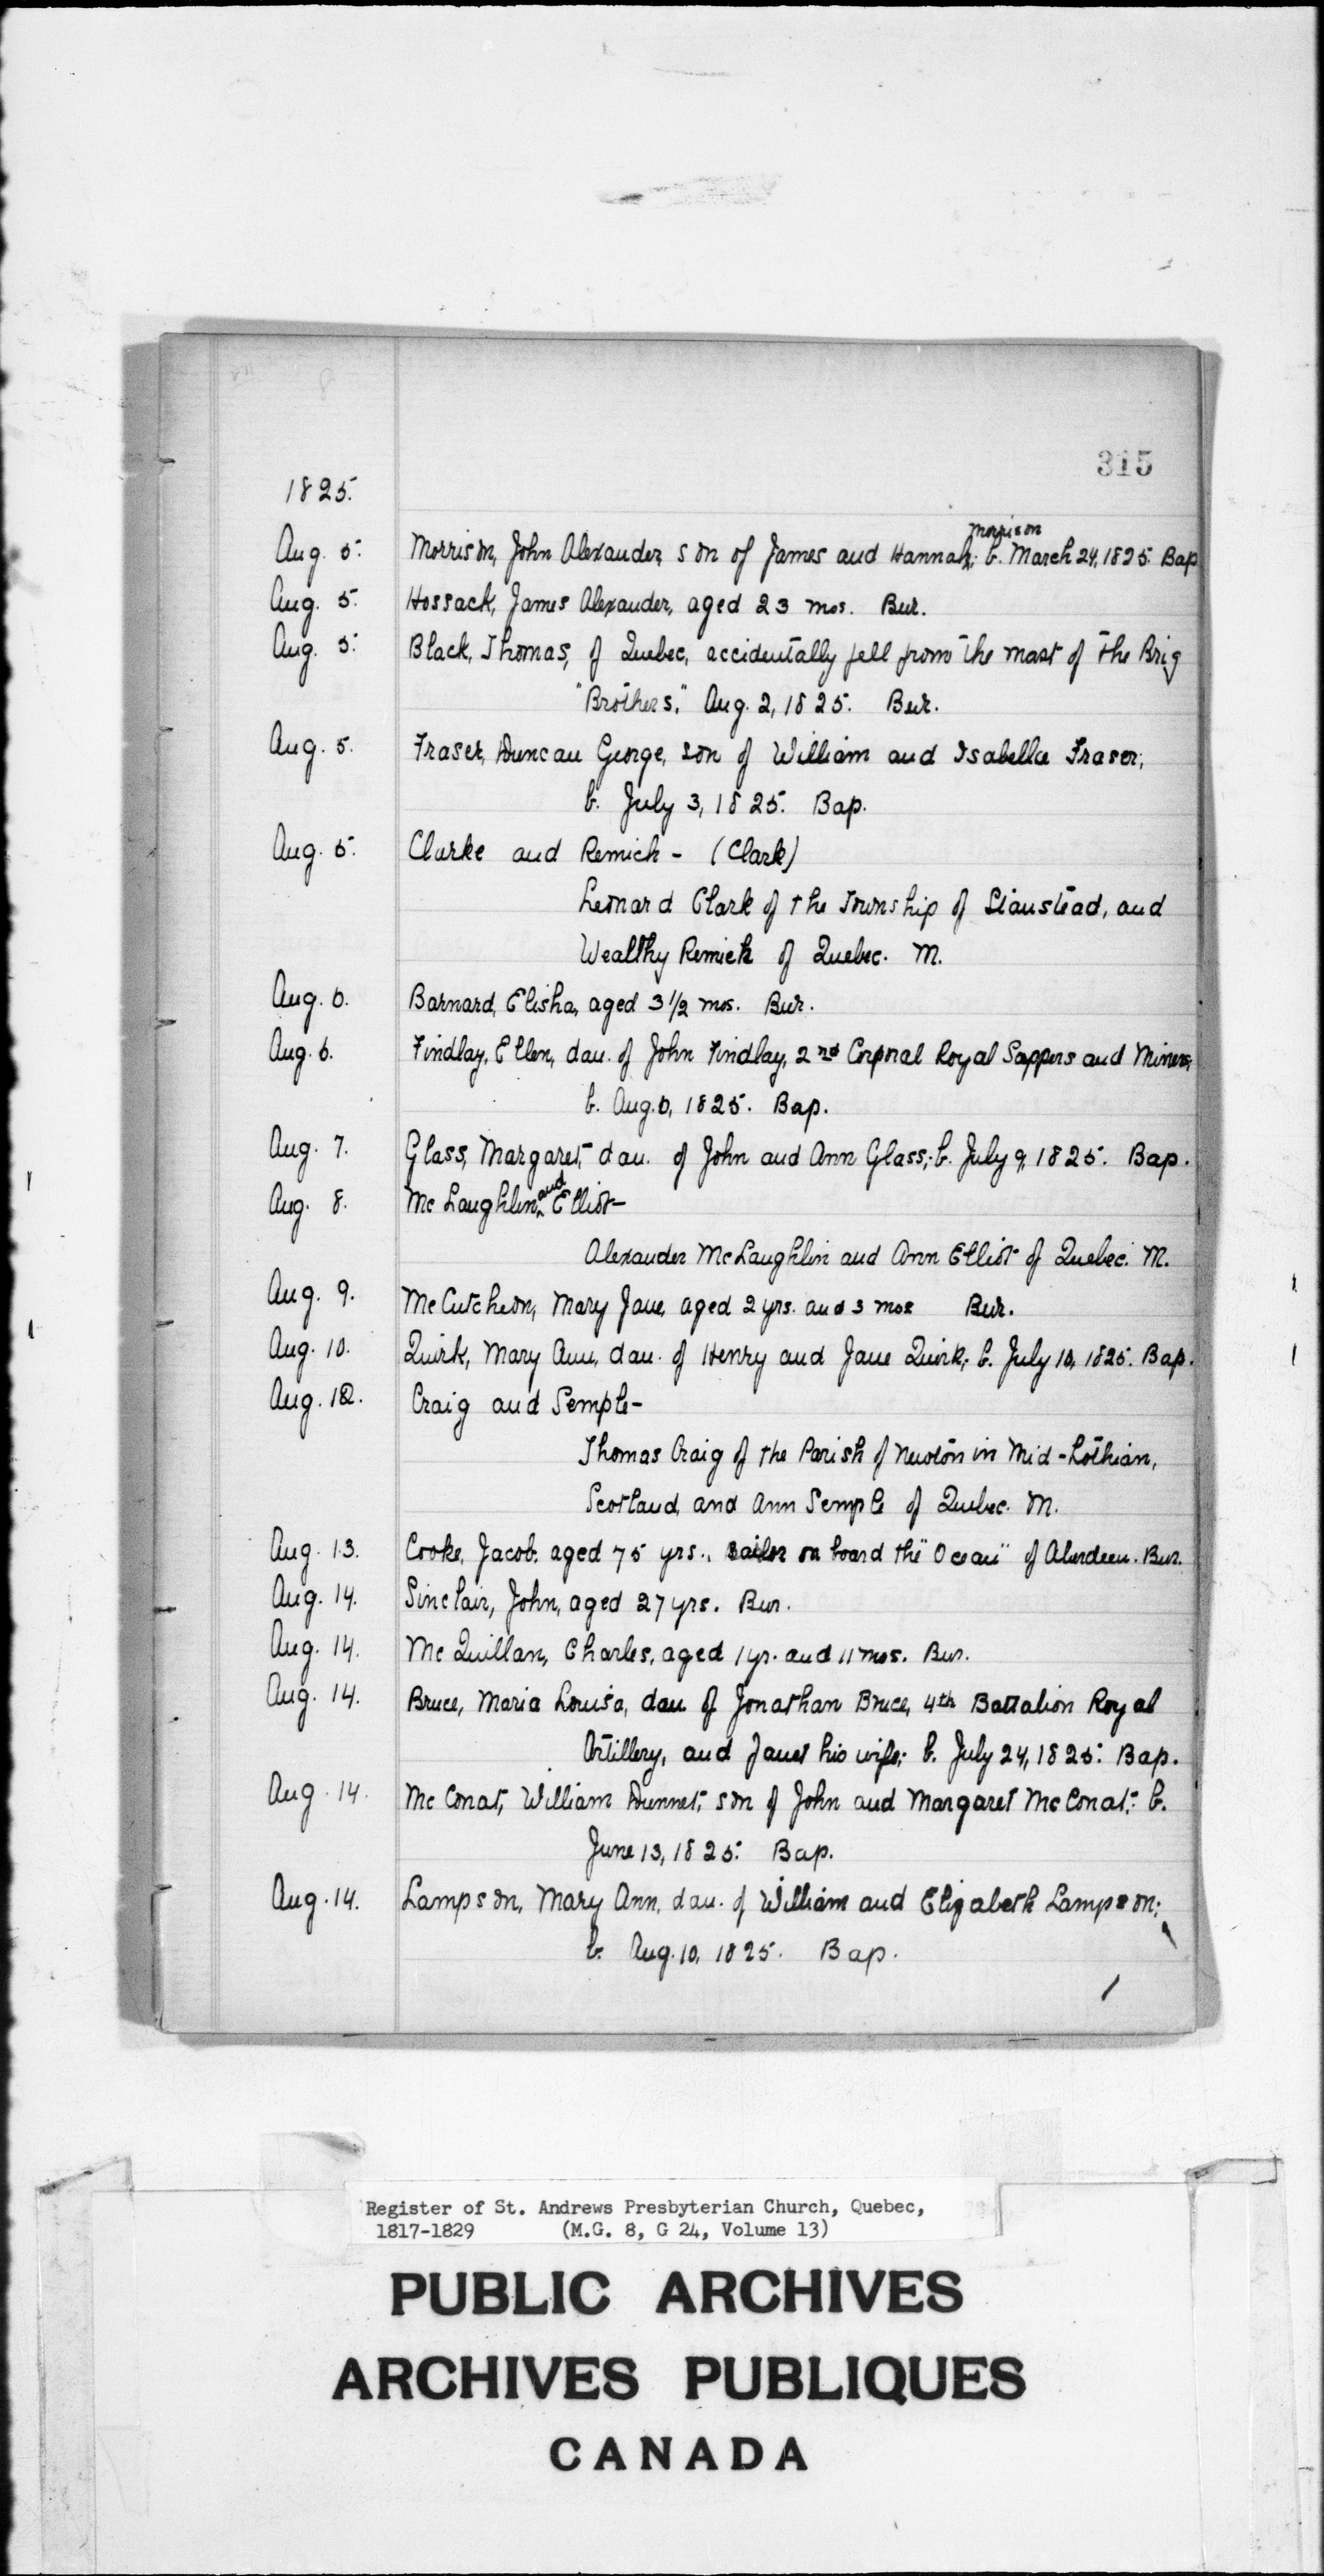 315
1825.
Aug. 5. Morrison, John Alexander, son of James and Hannah Morrison; b. March 24, 1825. Bap
Aug. 5. Hossack, James Alexander, aged 23 mos. Bur.
Aug. 5. Black, Thomas, of Quebec, accidentally fell from the mast of the Brig
"Brothers," Aug. 2, 1825. Bur.
Aug. 5. Fraser, Duncan George, son of William and Isabella Fraser;
b. July 3, 1825. Bap.
Aug. 5. Clarke and Remick - (Clark)
Leonard Clark of the Township of Stanstead, and
Wealthy Remick of Quebec. M.
Aug. 6. Barnard, Elisha, aged 3 1/2 mos. Bur.
Aug. 6. Findlay, Ellen, dau. of John Findlay, 2nd Corporal Royal Sappers and Miners;
b. Aug. 6, 1825. Bap.
Aug. 7. Glass, Margaret, dau. of John and Ann Glass; b. July 9, 1825. Bap.
Aug. 8. McLaughlin and Elliot -
Alexander McLaughlin and Ann Elliot of Quebec. M.
Aug. 9. McCutcheon, Mary Jane, aged 2 yrs. and 3 mos Bur.
Aug. 10. Quirk, Mary Ann, dau. of Henry and Jane Quirk; b. July 10, 1825. Bap.
Aug. 12. Craig and Semple -
Thomas Craig of the Parish of Newton in Mid-Lothian,
Scotland, and Ann Semple of Quebec. M.
Aug. 13. Cooke, Jacob, aged 75 yrs., sailor on board the "Ocean" of Aberdeen. Bur.
Aug. 14. Sinclair, John, aged 27 yrs. Bur.
Aug. 14. McQuillan, Charles, aged 1 yr. and 11 mos. Bur.
Aug. 14. Bruce, Maria Louisa, dau of Jonathan Bruce, 4th Battalion Royal
Artillery, and Janet his wife; b. July 24, 1825. Bap.
Aug. 14. McConat, William Dunnet, son of John and Margaret McConat; b.
June 13, 1825. Bap.
Aug. 14. Lampson, Mary Ann, dau. of William and Elizabeth Lampson;
b. Aug. 10, 1825. Bap.
Register of St. Andrews Presbyterian Church, Quebec,
1817-1829 (M.G. 8, G 24, Volume 13)
PUBLIC ARCHIVES
ARCHIVES PUBLIQUES
CANADA